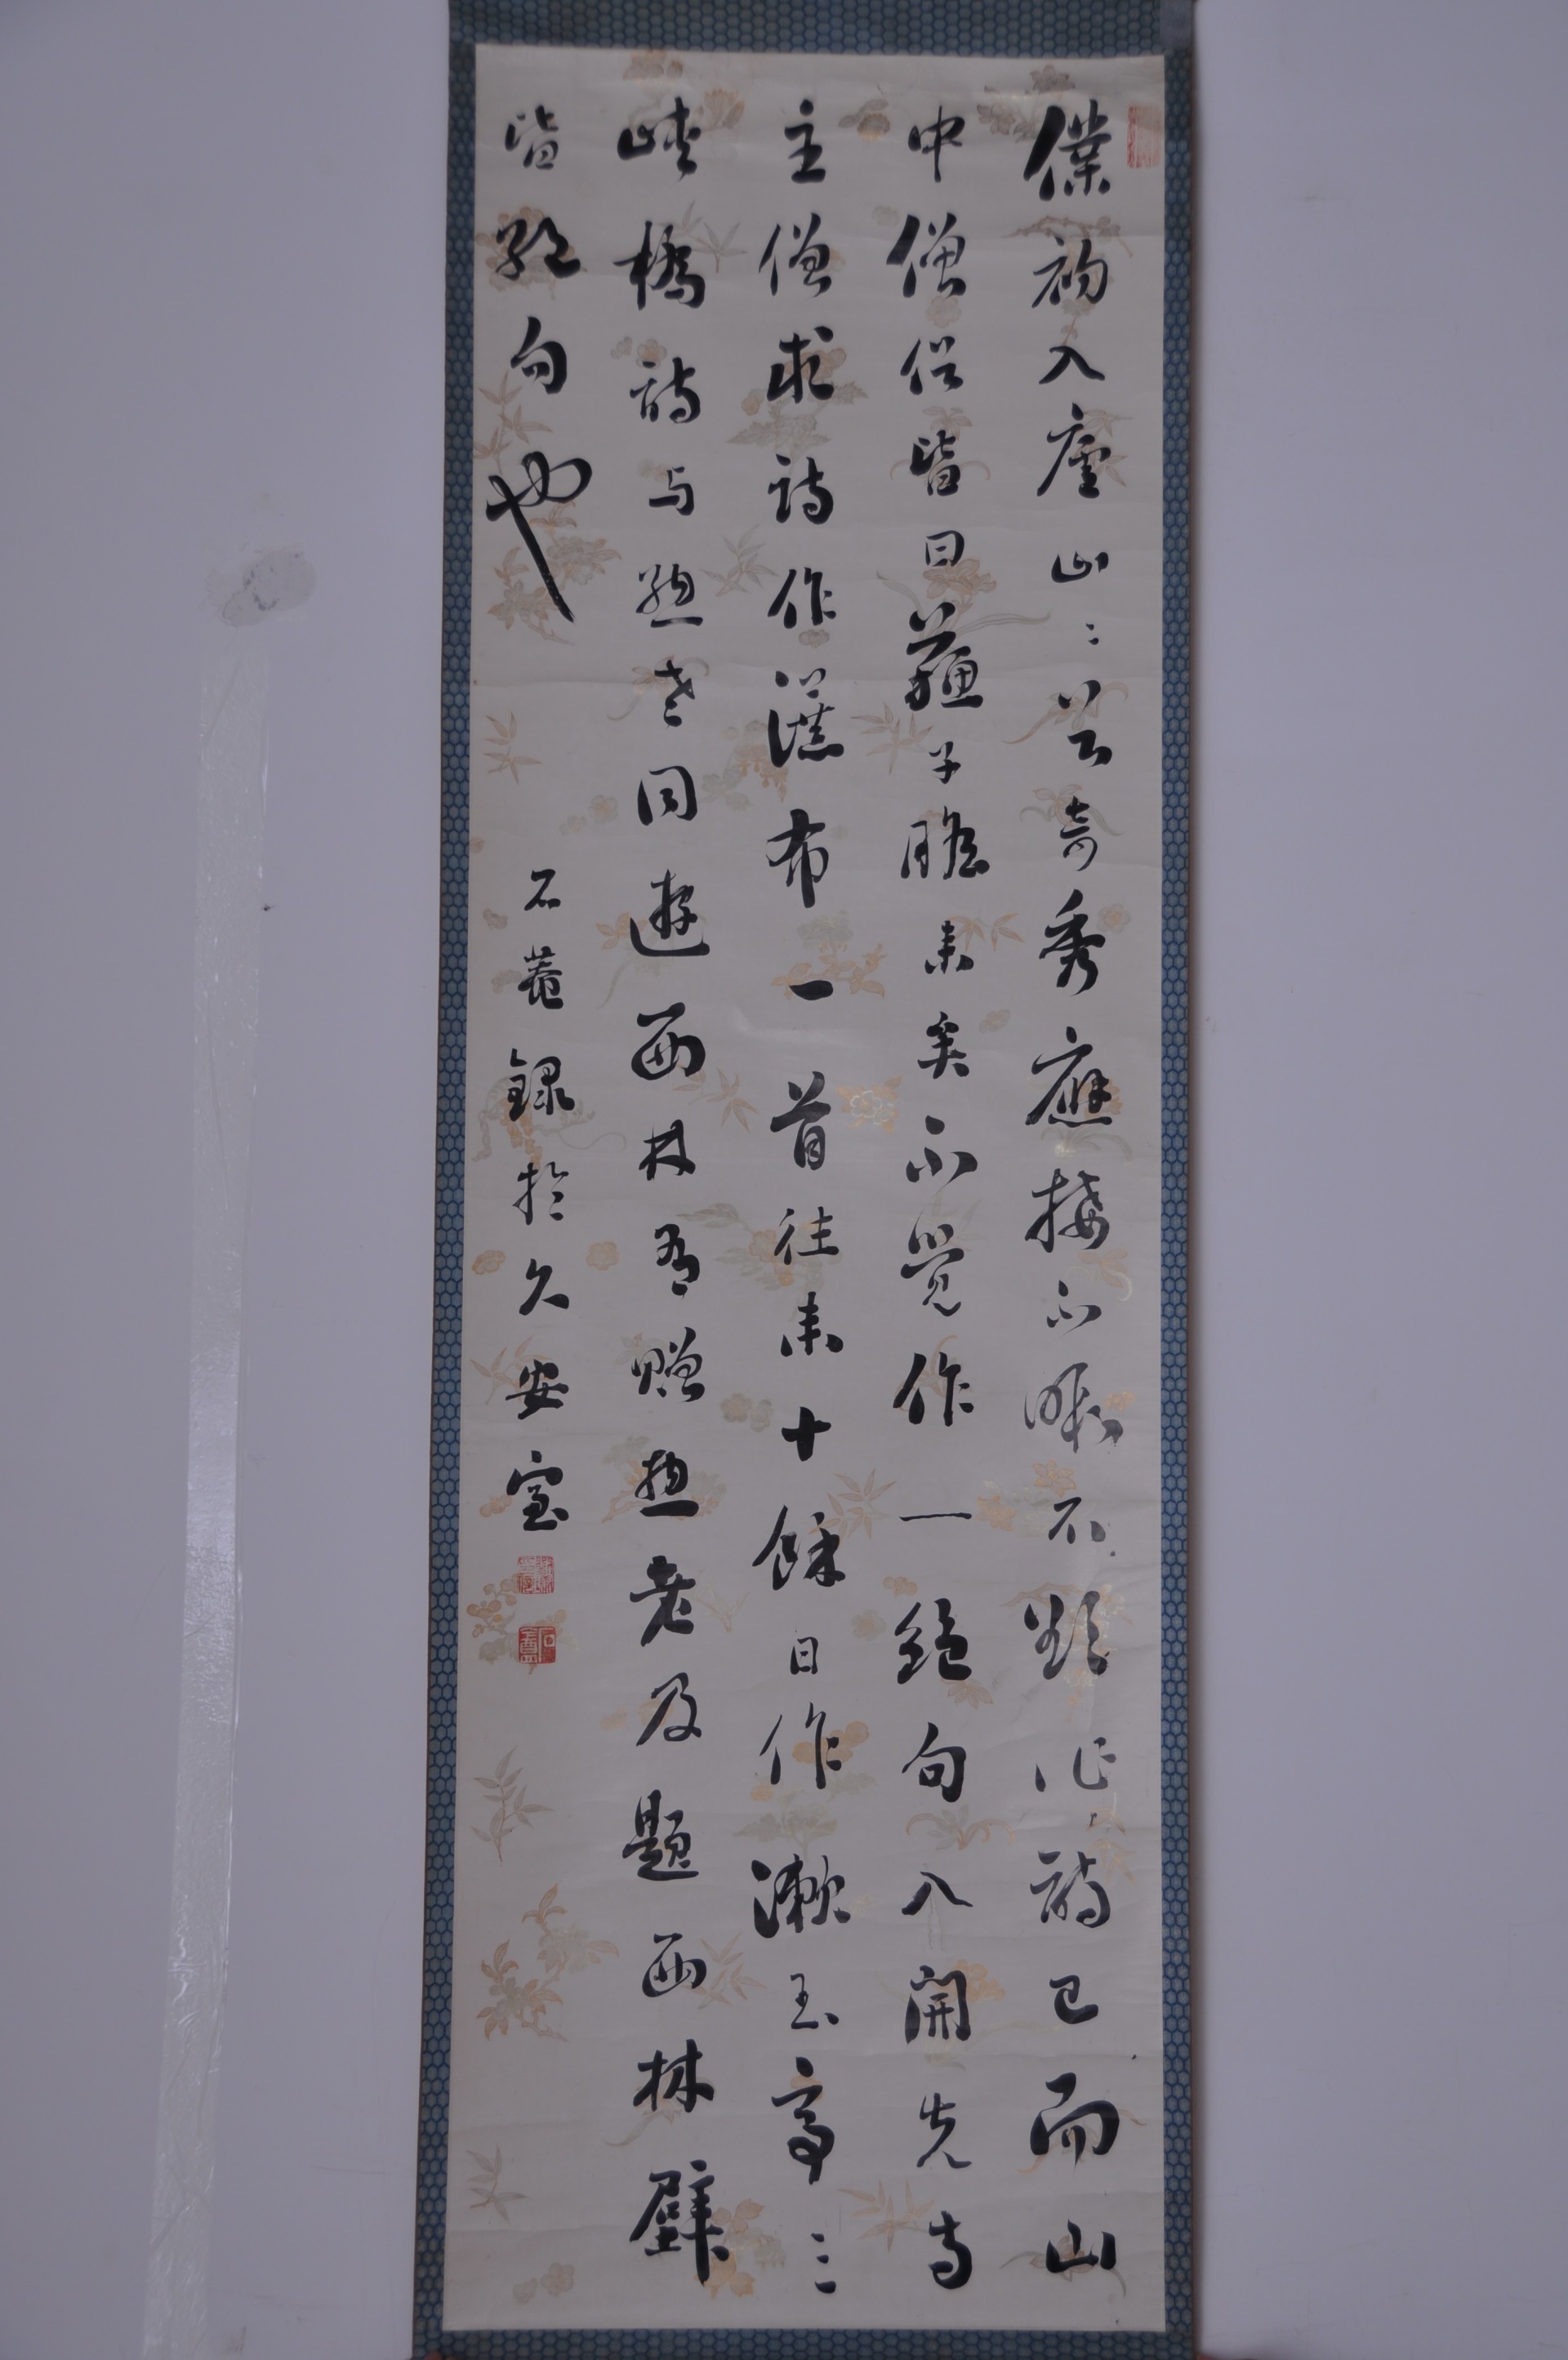 僕初入廬山山谷奇秀應接不暇不欲作詩已而山
中僧俗皆曰蘇子瞻來矣不覺作一絕句入開先寺
主僧求詩作瀑布一首往來十餘日作漱玉亭三
峽橋詩与總老同遊西林有贈總老及題西林壁
皆絕句也
石菴錄於久安室